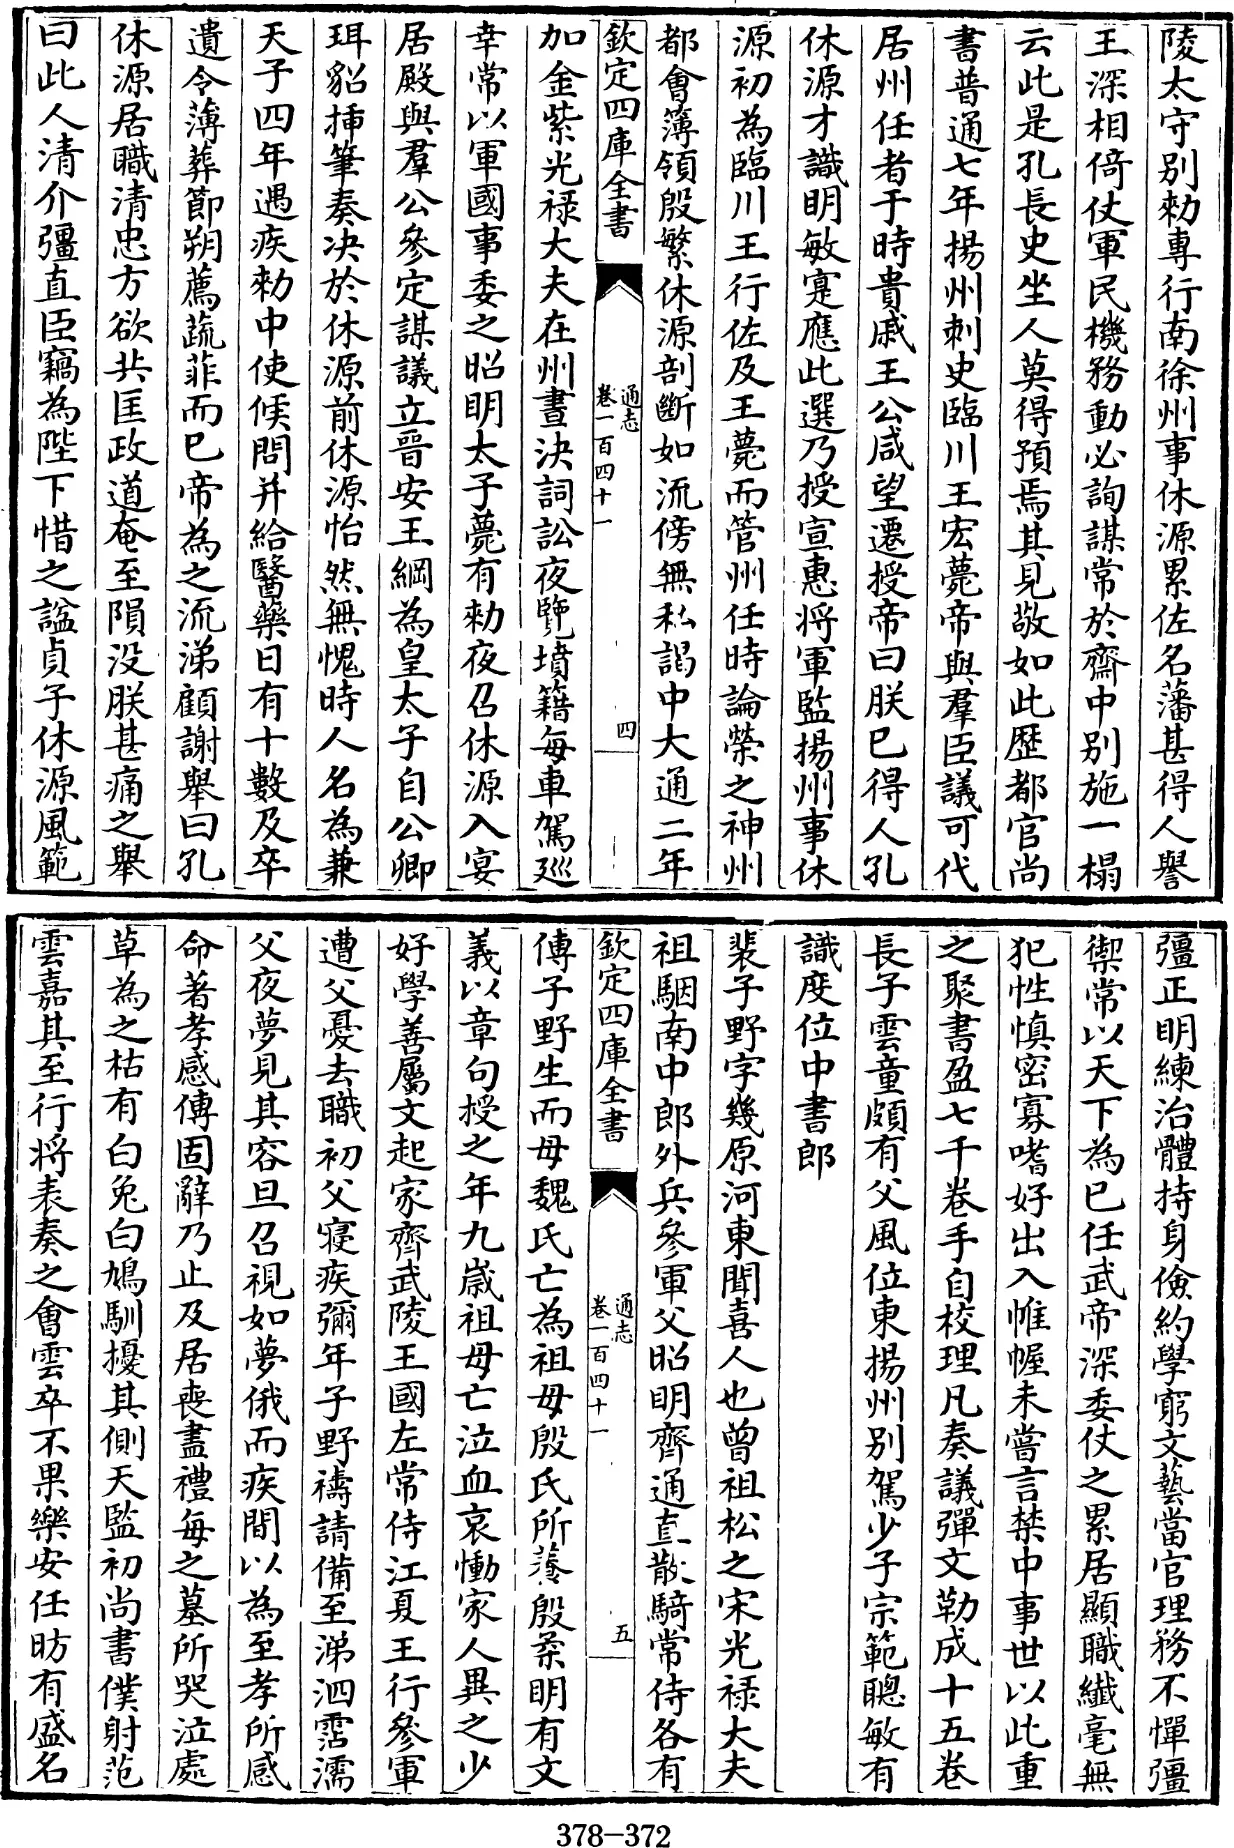 陵太守別勅專行南徐州事休源累佐名藩甚得人譽
王深相倚仗軍民機務動必詢謀常於齋中别施一榻
云此是孔長史坐人莫得預焉其見敬如此歴都官尚
書普通七年揚州刺史臨川王宏薨帝與羣臣議可代
居州任者于時貴戚王公咸望遷授帝曰朕已得人孔
休源才識明敏寔應此選乃授宣惠将軍監揚州事休
源初為臨川王行佐及王薨而管州任時論榮之神州
都會簿領殷繁休源剖斷如流傍無私謁中大通二年
欽定四庫全書
通志
卷一百四十一
四
加金紫光禄大夫在州晝决詞訟夜覽墳籍每車駕巡
幸常以軍國事委之昭明太子薨有勅夜召休源入宴
居殿與羣公參定謀議立晉安王綱為皇太子自公卿
珥貂揷筆奏决於休源前休源怡然無愧時人名為兼
天子四年遇疾勅中使候問并給醫藥日有十數及卒
遺令薄葬節朔薦蔬菲而已帝為之流涕顧謝舉曰孔
休源居職清忠方欲共匡政道奄至隕没朕甚痛之舉
曰此人清介彊直臣竊為陛下惜之諡貞子休源風範
彊正明練治體持身儉約學窮文藝當官理務不憚彊
禦常以天下為己任武帝深委仗之累居顯職纎毫無
犯性慎密寡嗜好出入帷幄未嘗言禁中事世以此重
之聚書盈七千卷手自校理凡奏議彈文勒成十五卷
長子雲童頗有父風位東揚州别駕少子宗範聰敏有
識度位中書郎
裴子野字幾原河東聞喜人也曾祖松之宋光禄大夫
祖駰南中郎外兵參軍父昭明齊通直散騎常侍各有
欽定四庫全書
通志
卷一百四十一
五
傳子野生而母魏氏亡為祖母殷氏所養殷柔明有文
義以章句授之年九歳祖母亡泣血哀慟家人異之少
好學善屬文起家齊武陵王國左常侍江夏王行參軍
遭父憂去職初父寢疾彌年子野禱請備至涕泗霑濡
父夜夢見其容旦召視如夢俄而疾間以為至孝所感
命著孝感傳固辭乃止及居喪盡禮每之墓所哭泣處
草為之枯有白兔白鳩馴擾其側天監初尚書僕射范
雲嘉其至行将表奏之會雲卒不果樂安任昉有盛名
378-372